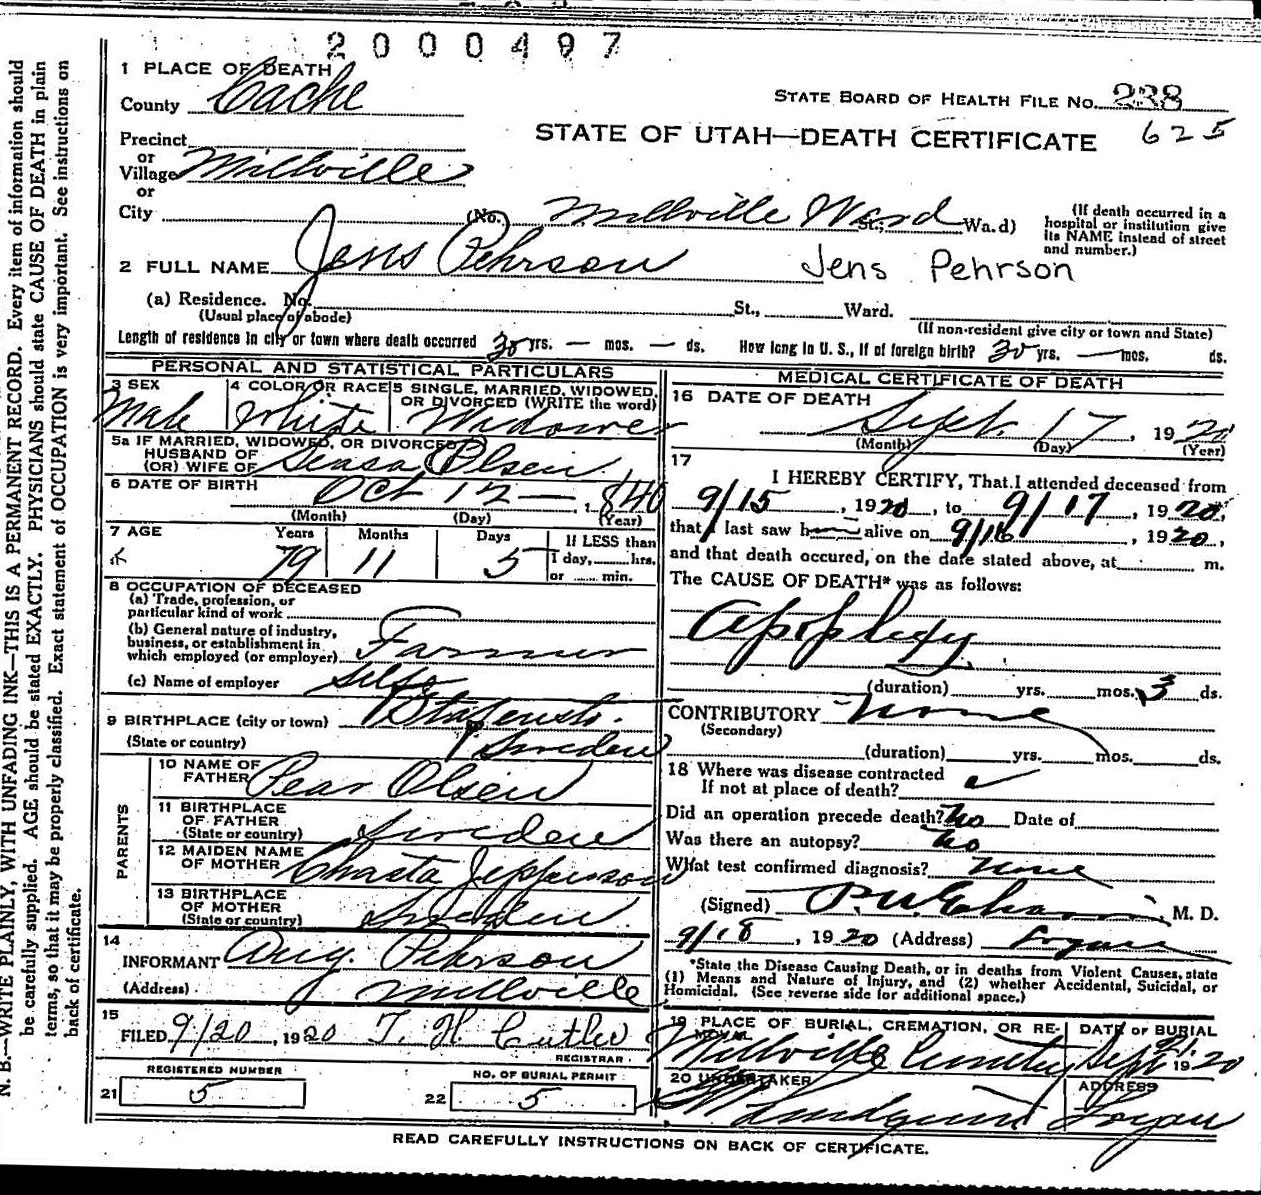 2000497
1 PLACE OF DEATH
County Cache
STATE BOARD OF HEALTH FILE NO. 238
625
STATE OF UTAH—DEATH CERTIFICATE
Precinct
or
Village Millville
or
City (No. Millville Ward St.; Wa.d)
(If death occurred in a hospital or institution give its NAME instead of street and number.)
2 FULL NAME Jens Pehrson Jens Pehrson
(a) Residence. No. St., Ward.
(Usual place of abode) (If non-resident give city or town and State)
Length of residence in city or town where death occurred 30 yrs. — mos. — ds. How long in U. S., if of foreign birth? 30 yrs. — mos. ds.
PERSONAL AND STATISTICAL PARTICULARS
3 SEX Male
4 COLOR OR RACE White
5 SINGLE, MARRIED, WIDOWED, OR DIVORCED (WRITE the word) Widower
5a IF MARRIED, WIDOWED, OR DIVORCED
HUSBAND OF
(OR) WIFE OF Olsen
6 DATE OF BIRTH Oct 12 — 1840
(Month) (Day) (Year)
7 AGE Years Months Days If LESS than
79 11 5 1 day, hrs.
or min.
8 OCCUPATION OF DECEASED
(a) Trade, profession, or
particular kind of work
(b) General nature of industry,
business, or establishment in
which employed (or employer) Farmer
(c) Name of employer Self
9 BIRTHPLACE (city or town)
(State or country) Sweden
PARENTS
10 NAME OF FATHER Pear Olsen
11 BIRTHPLACE OF FATHER (State or country) Sweden
12 MAIDEN NAME OF MOTHER Chasta Jepperson
13 BIRTHPLACE OF MOTHER (State or country) Sweden
14
INFORMANT Aug. Pehrson
(Address) Millville
15
FILED 9/20, 1920 T. H. Cutler
REGISTRAR.
REGISTERED NUMBER NO. OF BURIAL PERMIT
21 5 22 5
MEDICAL CERTIFICATE OF DEATH
16 DATE OF DEATH
Sept. 17, 1920
(Month) (Day) (Year)
17
I HEREBY CERTIFY, That I attended deceased from
9/15, 1920, to 9/17, 1920,
that I last saw h alive on 9/16, 1920,
and that death occured, on the date stated above, at m.
The CAUSE OF DEATH* was as follows:
Apoplexy
(duration) yrs. mos. 3 ds.
CONTRIBUTORY none
(Secondary)
(duration) yrs. mos. ds.
18 Where was disease contracted
If not at place of death?
Did an operation precede death? No Date of
Was there an autopsy? No
What test confirmed diagnosis? None
(Signed) M. D.
9/18, 1920 (Address) Logan
*State the Disease Causing Death, or in deaths from Violent Causes, state
(1) Means and Nature of Injury, and (2) whether Accidental, Suicidal, or
Homicidal. (See reverse side for additional space.)
19 PLACE OF BURIAL, CREMATION, OR REMOVAL DATE OF BURIAL
Millville Cemetery Sept 21 1920
20 UNDERTAKER ADDRESS
Lindquist Logan
READ CAREFULLY INSTRUCTIONS ON BACK OF CERTIFICATE.
N. B.—WRITE PLAINLY, WITH UNFADING INK—THIS IS A PERMANENT RECORD. Every item of information should
be carefully supplied. AGE should be stated EXACTLY. PHYSICIANS should state CAUSE OF DEATH in plain
terms, so that it may be properly classified. Exact statement of OCCUPATION is very important. See instructions on
back of certificate.